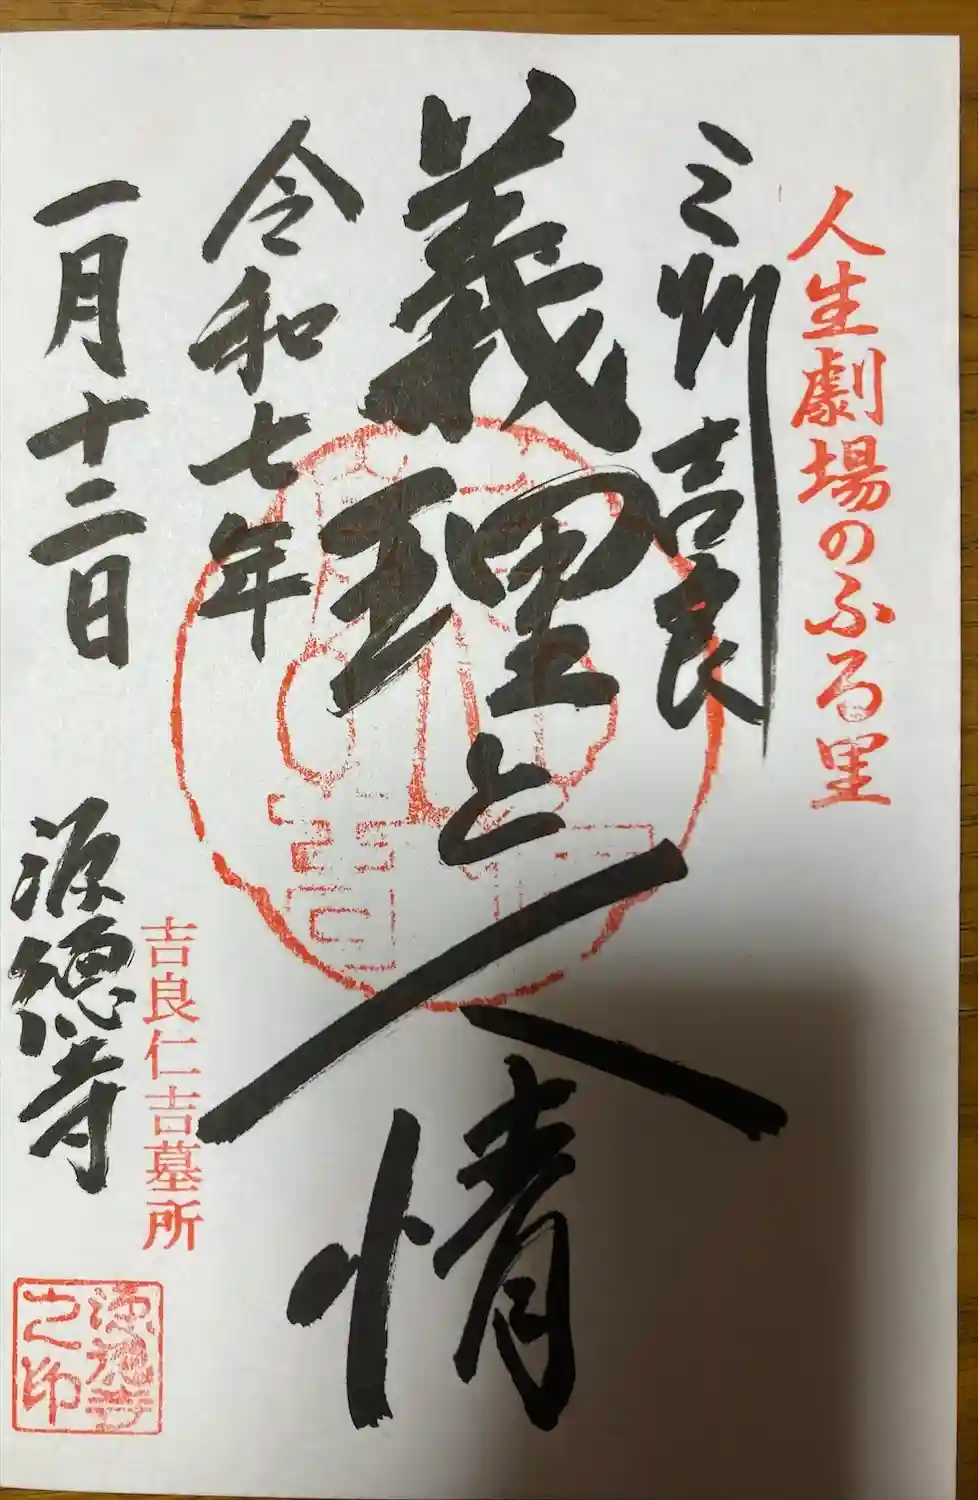 人生劇場のふる里
三州吉良
義理と人情
令和七年
一月十二日
源徳寺
吉良仁吉墓所
源徳寺
之印